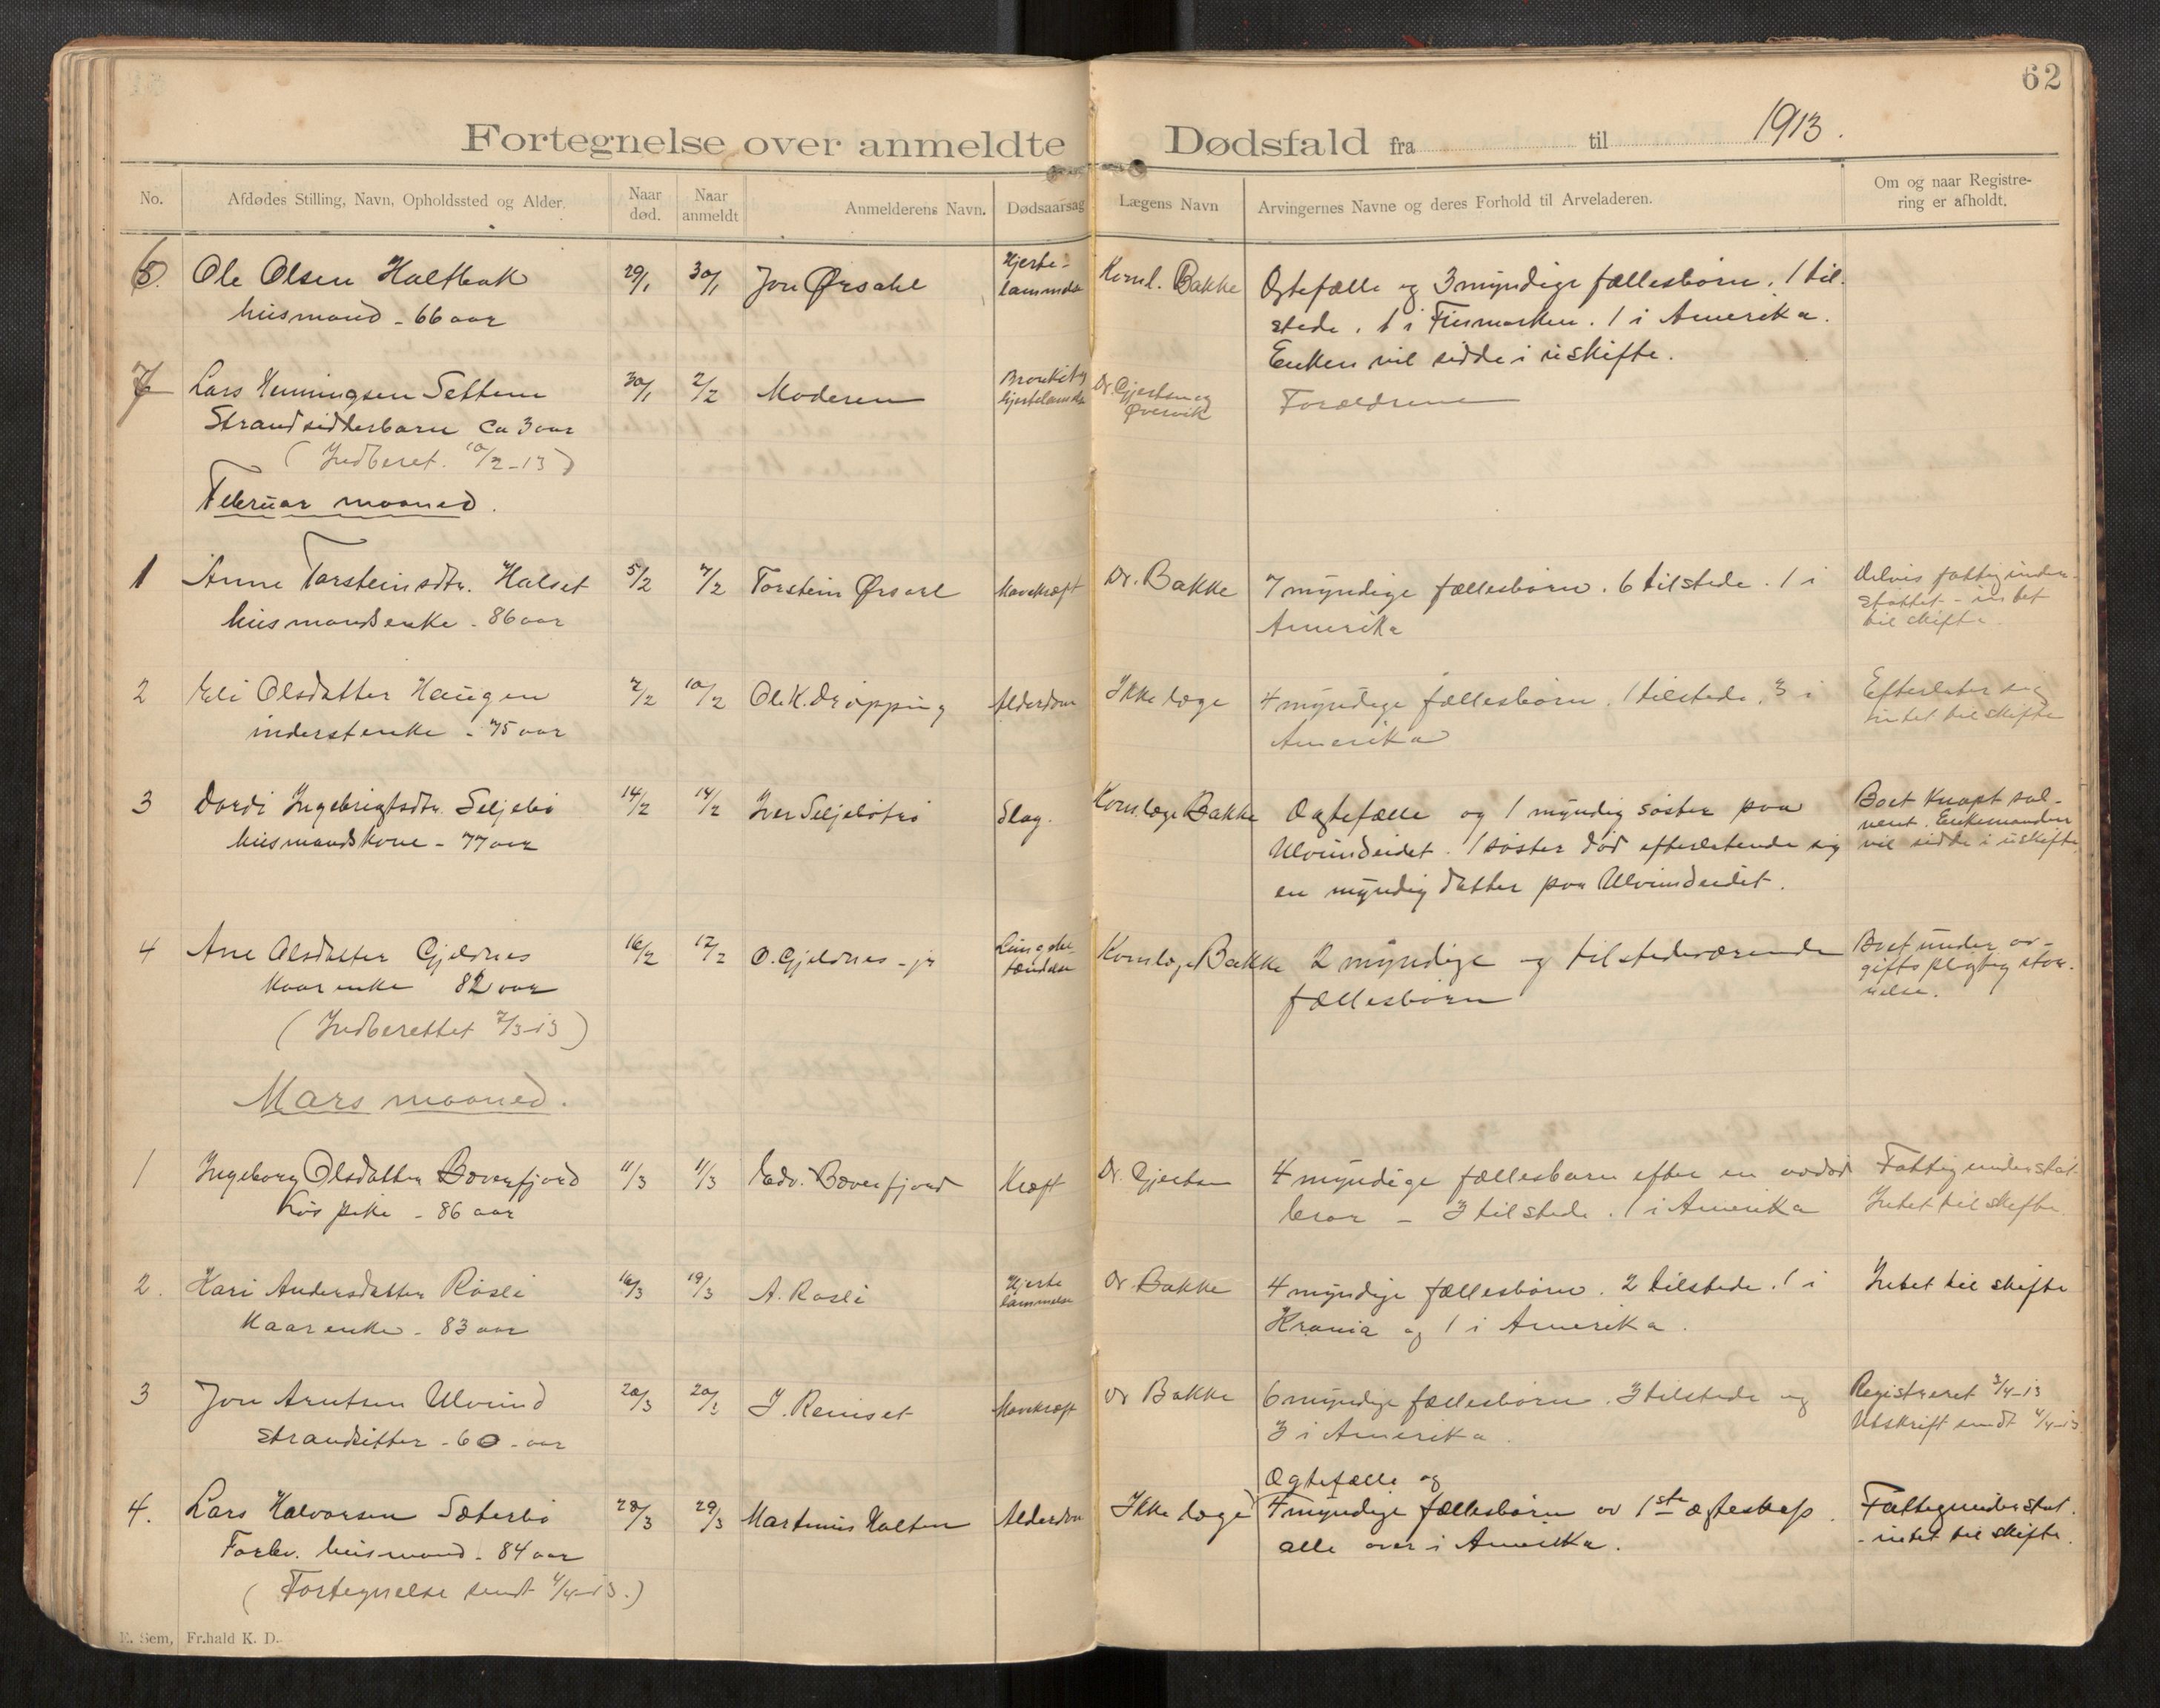 62
Fortegnelse over anmeldte Dødsfald fra til 1913.
No.
Afdødes Stilling, Navn, Opholdssted og Alder.
Naar død.
Naar anmeldt
Anmelderens Navn.
Dødsaarsag
Lægens Navn
Arvingernes Navne og deres Forhold til Arveladeren.
Om og naar Registre-
ring er afholdt.
6. Ole Olsen 29/1 30/1 Jon Hjerte- Koml. Bakke Ægtefælle og 3 myndige fællesbørn. 1 til
husmand - 66 aar lammelse stede. 1 i Finmarken. 1 i Amerika.
Enken vil sidde i uskifte.
7 Lars Henningsen Settem 30/1 2/2 Moderen Bronkit og Dr. Gjertsen og Forældrene
Strandsidderbarn ca 3 aar hjertelammelse Øvervik
(Indberet. 10/2-13)
Februar maaned.
1 Anne Torsteinsdtr. Halset 5/2 7/2 Torstein Mavekræft Dr. Bakke 7 myndige fællesbørn. 6 tilstede. 1 i Delvis fattigunder-
husmandsenke - 86 aar Amerika støttet - intet
til skifte.
2 Eli Olsdatter Haugen 7/2 10/2 Ole K. Drøpping Alderdom Ikke læge 4 myndige fællesbørn. 1 tilstede, 3 i Efterlater sig
inderstenke - 75 aar Amerika intet til skifte
3 Dordi Ingebrigtsdtr. Seljebø 14/2 14/2 Iver Seljebøtrø Slag. Koms.læge Bakke Ægtefælle og 1 myndig søster paa Boet knapt sol-
husmandskone - 77 aar Ulvundeidet. 1 søster død efterlatende sig vent. Enkemanden
en myndig datter paa Ulvundeidet. vil sidde i uskifte.
4 Ane Olsdatter Gjeldnes 16/2 17/2 O. Gjeldnes - jr Lungebe- Koms.læge Bakke 2 myndige og tilstedeværende Boet under av-
Kaarenke 82 aar tændelse fællesbørn giftspligtig stør-
relse.
(Indberettet 7/3-13)
Mars maaned.
1 Ingeborg Olsdatter Bæverfjord 11/3 11/3 Edv. Bæverfjord Kræft Dr. Gjertsen 4 myndige fællesbarn efter en avdød Fattigunderstøt.
løs pike - 86 aar bror - 3 tilstede. 1 i Amerika Intet til skifte.
2. Kari Andersdatter Røsli 16/3 19/3 A. Røsli Hjerte Dr. Bakke 4 myndige fællesbørn. 2 tilstede. 1 i Intet til skifte
Kaarenke - 83 aar lammelse Krania og 1 i Amerika.
3 Jon Arntsen Ulvund 20/3 20/3 J. Reniset Mavekræft Dr Bakke 6 myndige fællesbørn. 3 tilstede og Registreret 3/4-13
strandsitter - 60 - aar 3 i Amerika. Utskrift sendt 4/4-13
Ægtefælle og
4. Lars Halvorsen Sæterbø 28/3 29/3 Martinus Holten Alderdom Ikke læge 4 myndige fællesbørn av 1ste ægteskap. Fattigunderstøt.
Forhv. husmand - 84 aar alle over i Amerika. - intet til skifte.
(Fortegnelse sendt 4/4-13.)
E. Sem, Fr.hald K. D.